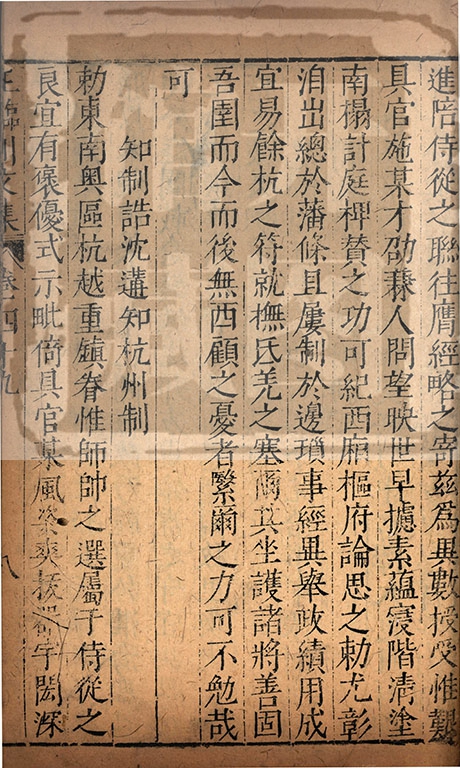 進陪侍從之聯往膺經略之寄茲爲異數授受惟艱
具官施某才劭兼人問望映世早攄素蘊寖階凊塗
南榻計庭裨贊之功可紀西廂樞府論思之勅尤彰
洎出總於藩條且屢制於邊瑣事經異舉政績用成
宜易餘杭之符就撫氐羌之塞爾其坐護諸將善固
吾圉而今而後無西顧之憂者繄爾之力可不勉哉
可
知制誥沈遘知杭州制
勅東南奧區杭越重鎮眷惟師帥之選屬于侍從之
良宜有褒優式示毗倚具官某風姿爽拔器宇閎深
王臨川文集 卷四十九 八